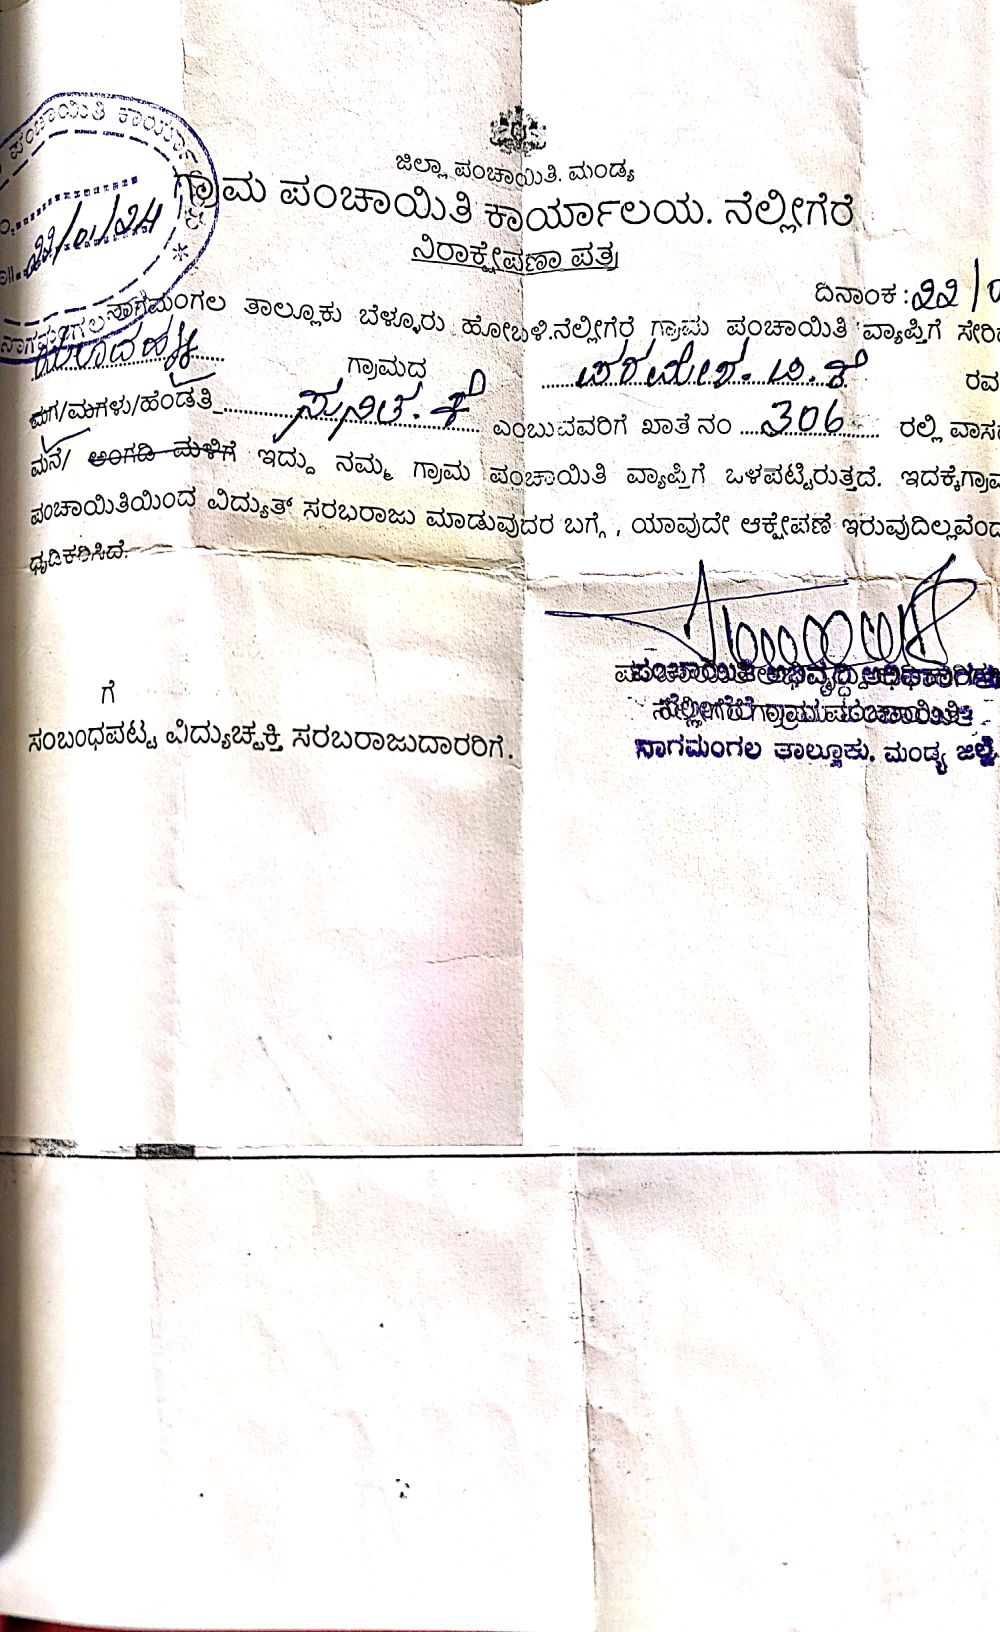 ಪಂಚಾಯಿತಿ ಕಾರ್ಯಾ
22/01/24
ಜಿಲ್ಲಾ ಪಂಚಾಯಿತಿ. ಮಂಡ್ಯ
ಗ್ರಾಮ ಪಂಚಾಯಿತಿ ಕಾರ್ಯಾಲಯ. ನೆಲ್ಲೀಗೆರೆ
ನಿರಾಕ್ಷೇಪಣಾ ಪತ್ರ
ದಿನಾಂಕ : 22/0
ನಾಗಮಂಗಲ ತಾಲ್ಲೂಕು ಬೆಳ್ಳೂರು ಹೋಬಳಿ.ನೆಲ್ಲೀಗೆರೆ ಗ್ರಾಮ ಪಂಚಾಯಿತಿ ವ್ಯಾಪ್ತಿಗೆ ಸೇರಿ
ಗ್ರಾಮದ ಪರಮೇಶ. ಟಿ. ಕೆ ರವ
ಮಗ/ಮಗಳು/ಹೆಂಡತಿ ಸುನಿತ. ಕೆ ಎಂಬುವವರಿಗೆ ಖಾತೆ ನಂ 306 ರಲ್ಲಿ ವಾಸ
ಮನೆ/ ಅಂಗಡಿ ಮಳಿಗೆ ಇದ್ದು ನಮ್ಮ ಗ್ರಾಮ ಪಂಚಾಯಿತಿ ವ್ಯಾಪ್ತಿಗೆ ಒಳಪಟ್ಟಿರುತ್ತದೆ. ಇದಕ್ಕೆಗ್ರಾಮ
ಪಂಚಾಯಿತಿಯಿಂದ ವಿದ್ಯುತ್ ಸರಬರಾಜು ಮಾಡುವುದರ ಬಗ್ಗೆ , ಯಾವುದೇ ಆಕ್ಷೇಪಣೆ ಇರುವುದಿಲ್ಲವೆಂದ
ಧೃಡಿಕರಿಸಿದೆ.
ಪಂಚಾಯಿತಿ ಅಭಿವೃದ್ಧಿ ಅಧಿಕಾರಿಗಳು
ನೆಲ್ಲೀಗೆರೆ ಗ್ರಾಮ ಪಂಚಾಯಿತಿ
ನಾಗಮಂಗಲ ತಾಲ್ಲೂಕು. ಮಂಡ್ಯ ಜಿಲ್ಲೆ
ಗೆ
ಸಂಬಂಧಪಟ್ಟ ವಿದ್ಯುಚ್ಛಕ್ತಿ ಸರಬರಾಜುದಾರರಿಗೆ.